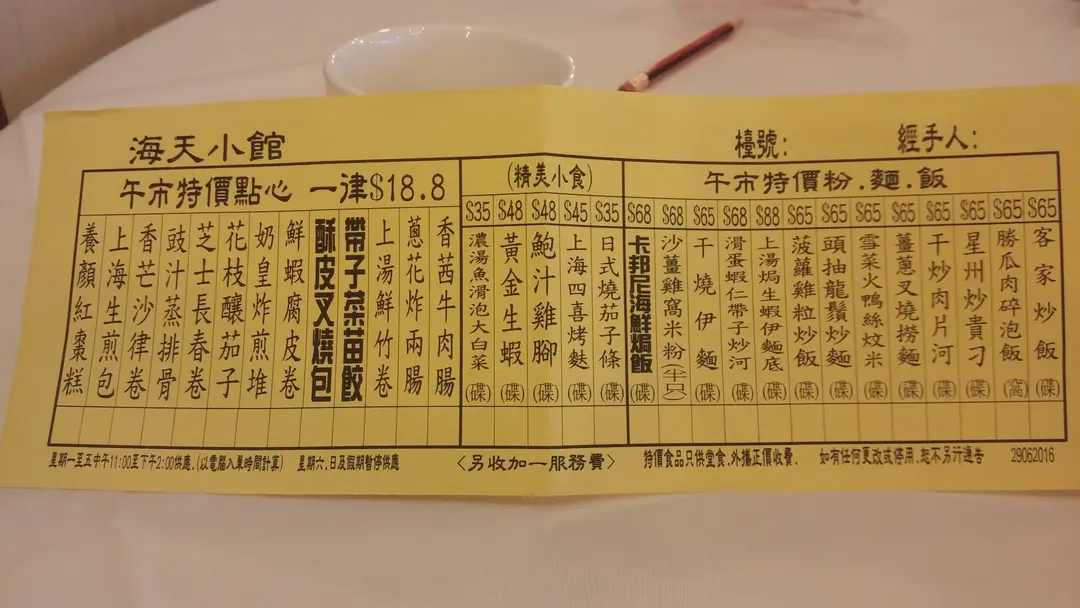 海天小館
檯號：
經手人：
午市特價點心 一律$18.8
(精美小食)
午市特價粉.麵.飯
香茜牛肉腸
蔥花炸兩腸
上湯鮮竹卷
帶子茶苗餃
酥皮叉燒包
鮮蝦腐皮卷
奶皇炸煎堆
花枝釀茄子
芝士長春卷
豉汁蒸排骨
香芒沙律卷
上海生煎包
養顏紅棗糕
$35 日式燒茄子條 (碟)
$45 上海四喜烤麩 (碟)
$48 鮑汁雞腳 (碟)
$48 黃金生蝦 (碟)
$35 濃湯魚滑泡大白菜 (碟)
$65 客家炒飯 (碟)
$65 勝瓜肉碎泡飯 (窩)
$65 星州炒貴刁 (碟)
$65 干炒肉片河 (碟)
$65 薑蔥叉燒撈麵 (碟)
$65 雪菜火鴨絲炆米 (碟)
$65 頭抽龍鬚炒麵 (碟)
$65 菠蘿雞粒炒飯 (碟)
$88 上湯焗生蝦伊麵底 (碟)
$68 滑蛋蝦仁帶子炒河 (碟)
$65 干燒伊麵 (碟)
$68 沙薑雞窩米粉(半只)
$68 卡邦尼海鮮焗飯 (碟)
星期一至五中午11:00至下午2:00供應.(以電腦入單時間計算) 星期六,日及假期暫停供應
〈另收加一服務費〉
特價食品只供堂食,外攜正價收費. 如有任何更改或停用,恕不另行通告 29062016